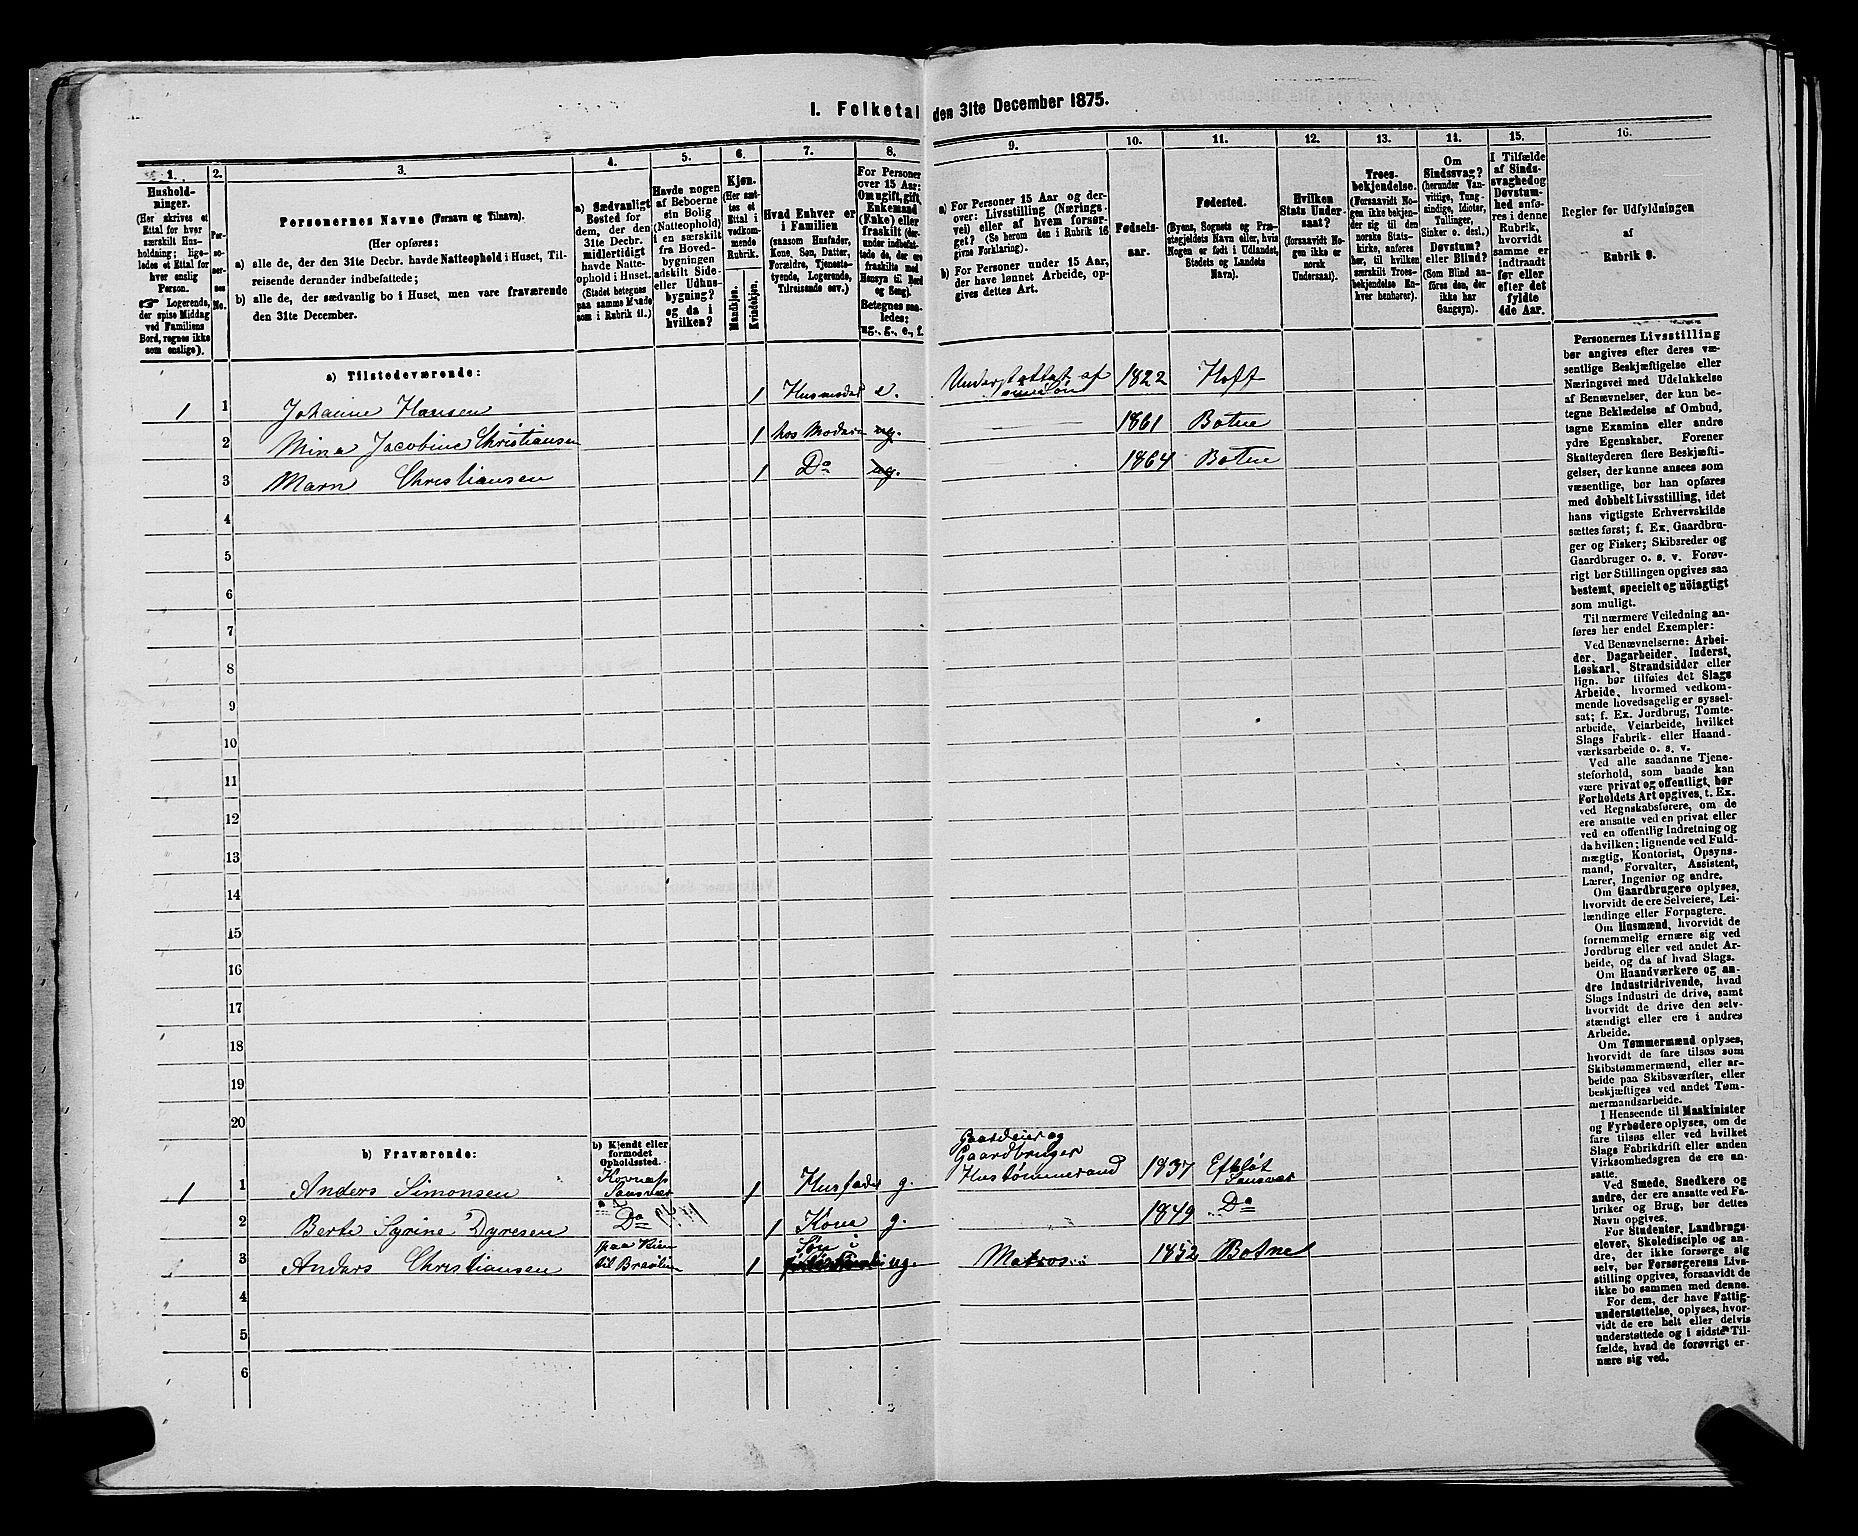 I. Folketal den 31te December 1875.
1.
2.
3.
4.
5.
6.
7.
8.
9.
10.
11.
12.
13.
14.
15.
16.
Hushold-
ninger.
(Her skrives et
Ettal for hver
særskilt Hus-
holdning; lige-
ledes et Ettal for
hver enslig
Person.
☞ Logerende,
der spise Middag
ved Familiens
Bord, regnes ikke
som enslige).
Per-
so-
ner-
nes
No.
Personernes Navne (Fornavn og Tilnavn).
(Her opføres:
a) alle de, der den 31te Decbr. havde Natteophold i Huset, Til-
reisende derunder indbefattede;
b) alle de, der sædvanlig bo i Huset, men vare fraværende
den 31te December.
a) Sædvanligt
Bosted for
dem, der den
31te Decbr.
midlertidigt
havde Natte-
ophold i Huset.
(Stedet betegnes
paa samme Maade
som i Rubrik 11.)
Havde nogen
af Beboerne
sin Bolig
(Natteophold)
i en særskilt
fra Hoved-
bygningen
adskilt Side-
eller Udhus-
bygning?
og da i
hvilken?
Kjøn.
(Her sæt-
tes et
Ettal i
vedkom-
mende
Rubrik.
Mandkjøn.
Kvindekjøn.
Hvad Enhver er
i Familien
(saasom Husfader,
Kone, Søn, Datter,
Forældre, Tjeneste-
tyende, Logerende,
Tilreisende osv.)
For Personer
over 15 Aar:
Om ugift, gift,
Enkemand
(Enke) eller
fraskilt (der-
under indbefat-
tede de, der ere
fraskilte med
Hensyn til Bord
og Seng).
Betegnes saa-
ledes:
ug., g., e., f.
a) For Personer 15 Aar og der-
over: Livsstilling (Nærings-
vei) eller af hvem forsør-
get? (Se herom den i Rubrik 16
givne Forklaring).
b) For Personer under 15 Aar,
der have lønnet Arbeide, op-
gives dettes Art.
Fødsels-
aar.
Fødested.
(Byens, Sognets og Præ-
stegjeldets Navn eller, hvis
Nogen er født i Udlandet,
Stedets og Landets
Navn).
Hvilken
Stats Under-
saat?
(forsaavidt No-
gen ikke er
norsk
Undersaat).
Troes-
bekjendelse.
(Forsaavidt No-
gen ikke bekjen-
der sig til den
norske Stats-
kirke, anføres
her, til hvilken
særskilt Troes-
bekjendelse En-
hver henhører).
Om
Sindssvag?
(herunder Van-
vittige, Tung-
sindige, Idioter,
Tullinger,
Sinker o. desl.)
Døvstum?
eller Blind?
(Som Blind an-
føres den, der
ikke har
Gangsyn).
I Tilfælde
af Sinds-
svaghed og
Døvstum-
hed anfø-
res i denne
Rubrik,
hvorvidt
samme er
indtraadt
før eller
efter det
fyldte
4de Aar.
Regler for Udfyldningen
af
Rubrik 9.
a) Tilstedeværende:
1 1 Johanne Hansen 1 Husmoder e. Understøttet af 1822 Hoff
2 Mina Jacobine Christiansen 1 hos Moderen ug. 1861 Botne
3 Marn Christiansen 1 Do ug. 1864 Botne
4
5
6
7
8
9
10
11
12
13
14
15
16
17
18
19
20
b) Fraværende:
b) Kjendt eller
formodet
Opholdssted.
Gaardeier og
Gaardbruger
1 1 Anders Simonsen 1 Husfader g. Hustømmermand 1837 Efteløt
Sansvær
2 Berte Syrine Dyresen Do 1 Kone g. 1849 Do
3 Anders Christiansen 1 Søn ug. Matros 1852 Botne
4
5
6
Personernes Livsstilling
bør angives efter deres væ-
sentlige Beskjæftigelse eller
Næringsvei med Udelukkelse
af Benævnelser, der kun be-
tegne Beklædelse af Ombud,
tagne Examina eller andre
ydre Egenskaber. Forener
Skatteyderen flere Beskjæfti-
gelser, der kunne ansees som
væsentlige, bør han opføres
med dobbelt Livsstilling, idet
hans vigtigste Erhvervskilde
sættes først; f. Ex. Gaardbru-
ger og Fisker; Skibsreder og
Gaardbruger o. s. v. Forøv-
rigt bør Stillingen opgives saa
bestemt, specielt og nøiagtigt
som muligt.
Til nærmere Veiledning an-
føres her endel Exempler:
Ved Benævnelserne: Arbei-
der, Dagarbeider, Inderst,
Løskarl, Strandsidder eller
lign. bør tilføies det Slags
Arbeide, hvormed vedkom-
mende hovedsagelig er syssel-
sat; f. Ex. Jordbrug, Tomte-
arbeide, Veiarbeide, hvilket
Slags Fabrik- eller Haand-
værksarbeide o. s. v.
Ved alle saadanne Tjene-
steforhold, som baade kan
være privat og offentligt, bør
Forholdets Art opgives, t. Ex.
ved Regnskabsførere, om de
ere ansatte ved en privat eller
ved en offentlig Indretning og
da hvilken; lignende ved Fuld-
mægtig, Kontorist, Opsyns-
mand, Forvalter, Assistent,
Lærer, Ingeniør og andre.
Om Gaardbrugere oplyses,
hvorvidt de ere Selveiere, Lei-
lændinge eller Forpagtere.
Om Husmænd, hvorvidt de
fornemmelig ernære sig ved
Jordbrug eller ved andet Ar-
beide, og da af hvad Slags.
Om Haandværkere og an-
dre Industridrivende, hvad
Slags Industri de drive, samt
hvorvidt de drive den selv-
stændigt eller ere i andres
Arbeide.
Om Tømmermænd oplyses,
hvorvidt de fare tilsøs som
Skibstømmermænd, eller ar-
beide paa Skibsværfter, eller
beskjæftiges ved andet Tøm-
mermandsarbeide.
I Henseende til Maskinister
og Fyrbødere oplyses, om de
fare tilsøs eller ved hvilket
Slags Fabrikdrift eller anden
Virksomhedsgren de ere an-
satte.
Ved Smede, Snedkere og
andre, der ere ansatte ved Fa-
briker og Brug, bør dettes
Navn opgives.
For Studenter, Landbrugs-
elever, Skoledisciple og an-
dre, der ikke forsørge sig
selv, bør Forsørgerens Livs-
stilling opgives, forsaavidt de
ikke bo sammen med denne.
For dem, der have Fattig-
understøttelse, oplyses, hvor-
vidt de ere helt eller delvis
understøttede og i sidste Til-
fælde, hvad de forøvrigt er-
nære sig ved.